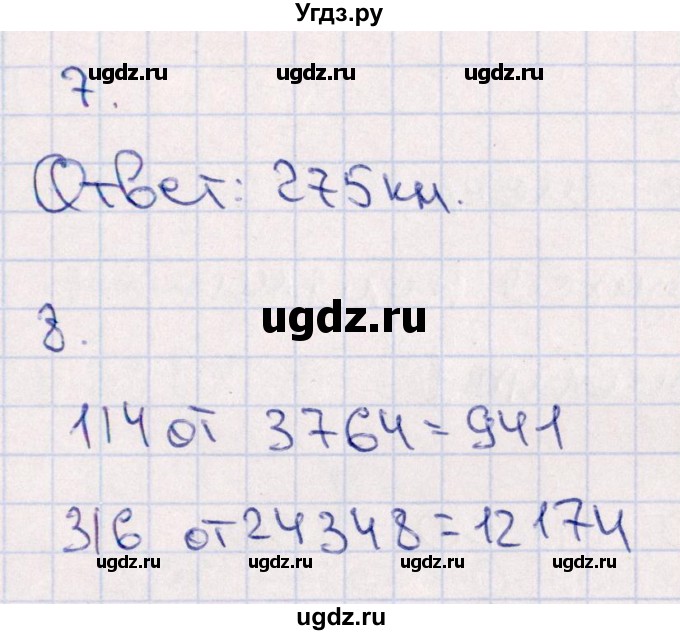 Угдз.ру
ugdz.ru ugdz.ru ugdz.ru
7.
Ответ: 275 км.
ugdz.ru
8.
1/4 от 3764 = 941
3/6 от 24348 = 12174
ugdz.ru ugdz.ru ugdz.ru
ugdz.ru